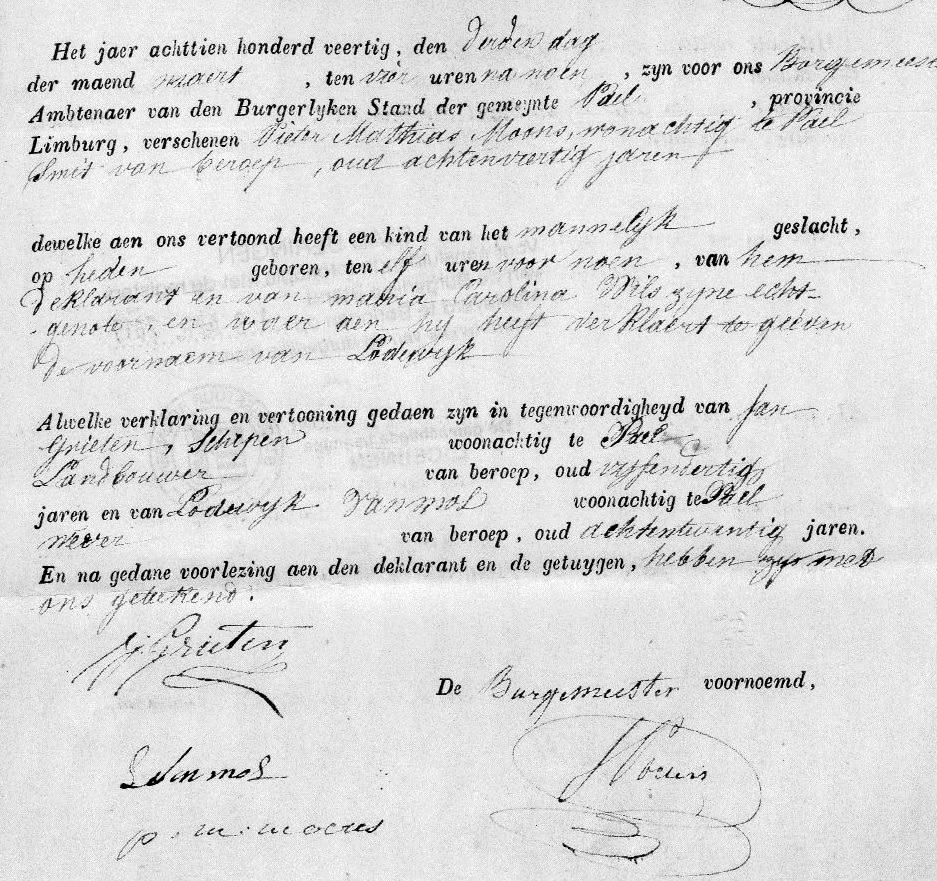 Het jaer achttien honderd veertig, den derden dag
der maend maert , ten vier uren na noen , zyn voor ons Borgemeester
Ambtenaer van den Burgerlyken Stand der gemeynte Pael , provincie
Limburg, verschenen Pieter Mathias Moons, wonachtig te Pael
Smit van beroep, oud achtenveertig jaren
dewelke aen ons vertoond heeft een kind van het mannelyk geslacht,
op heden geboren, ten elf uren voor noen , van hem
Deklarant en van maria Carolina Wils zyne echt-
genote, en waer aen hy heeft verklaert te geeven
de voornaem van Lodewyk
Alwelke verklaring en vertooning gedaen zyn in tegenwoordigheyd van Jan
Grieten, Schepen woonachtig te Pael
Landbouwer van beroep, oud vyfendertig
jaren en van Lodewyk Vanmol woonachtig te Pael
Wever van beroep, oud achtentwintig jaren.
En na gedane voorlezing aen den deklarant en de getuygen, hebben zys met
ons getekend.
J Grieten
De Burgemeester voornoemd,
L Van mol
p. m. moens